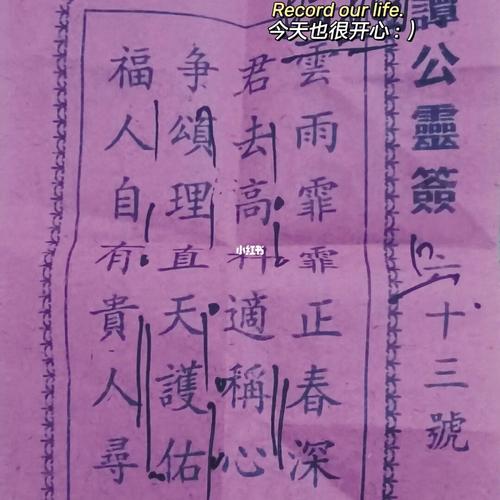 Record our life.
今天也很开心 : )
譚公靈簽
十三號
雲雨霏霏正春深
君去高科適稱心
争頌理直天護佑
福人自有貴人尋
小红书